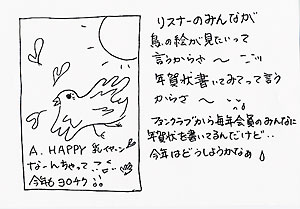 A. HAPPY 乳イヤ〜ン
なーんちゃって
今年もヨロチク
リスナーのみんなが
鳥の絵が見たいって
言うからさ 〜
年賀状書いてみてって言う
からさ 〜
ファンクラブから毎年会員のみんなに
年賀状を書いてるんだけど‥
今年はどうしようかなぁ